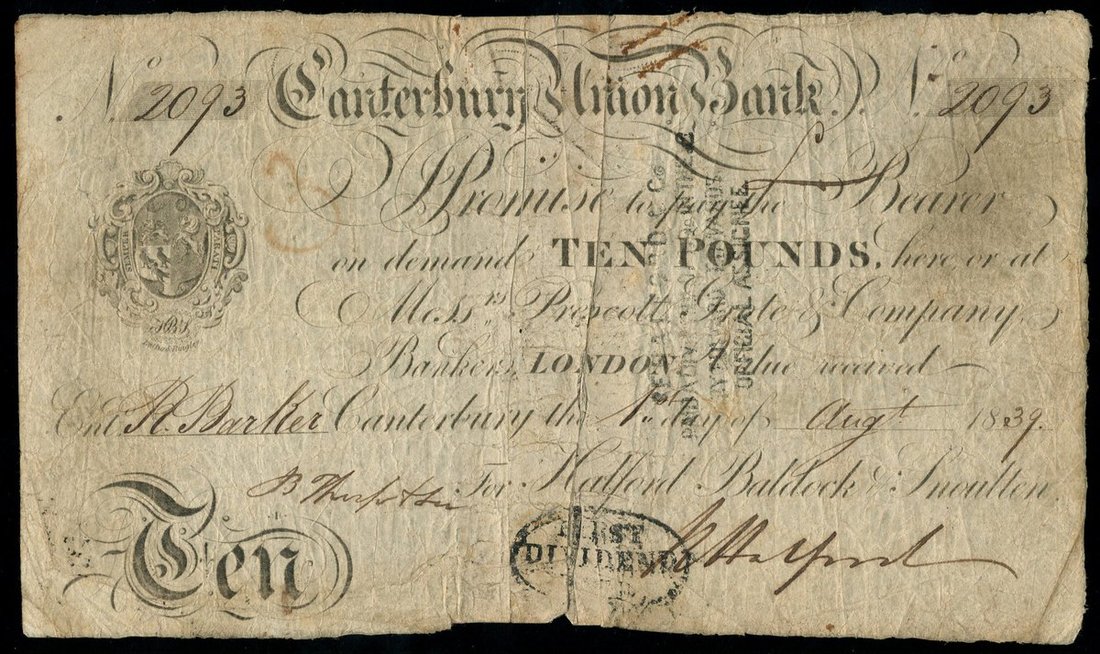 No 2093 Canterbury Union Bank. No 2093
I Promise to pay the Bearer
on demand TEN POUNDS, here or at
Messrs Prescott, Grote & Company,
Bankers, LONDON, Value received
Entd R. Barker Canterbury the 1st day of Augt 1839.
For Halford Baldock & Snoulten
Ten
FIRST
DIVIDEND
OFFICIAL ASSIGNEE